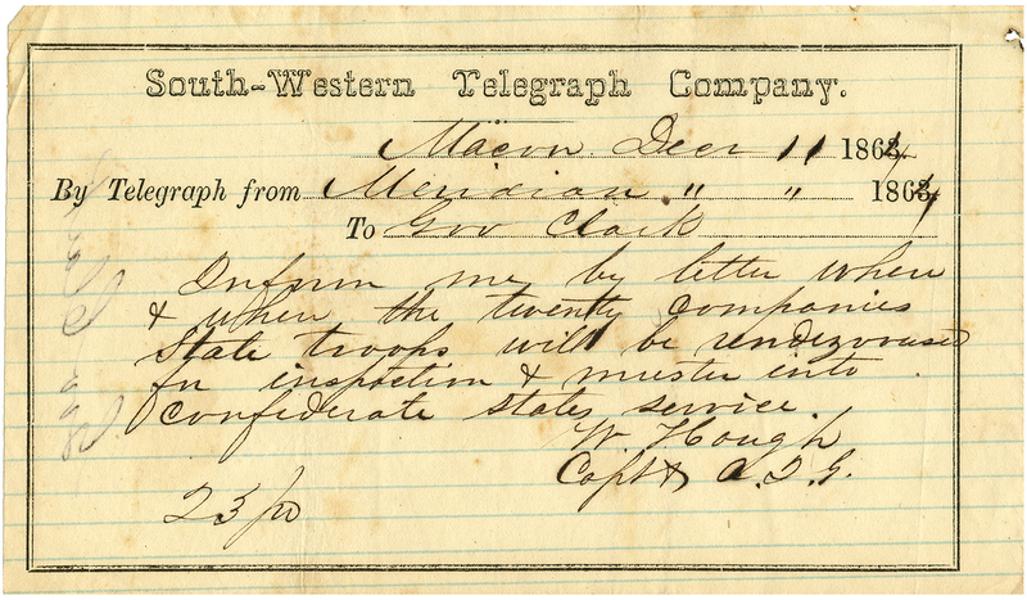 South-Western Telegraph Company.
Macon Decr 11 1864
By Telegraph from Meridian " " 1864
To Gov Clark
Inform me by letter where
& when the twenty companies
State troops will be rendezvoused
for inspection & muster into
Confederate States service.
W Hough
Capt & A.I.G.
23